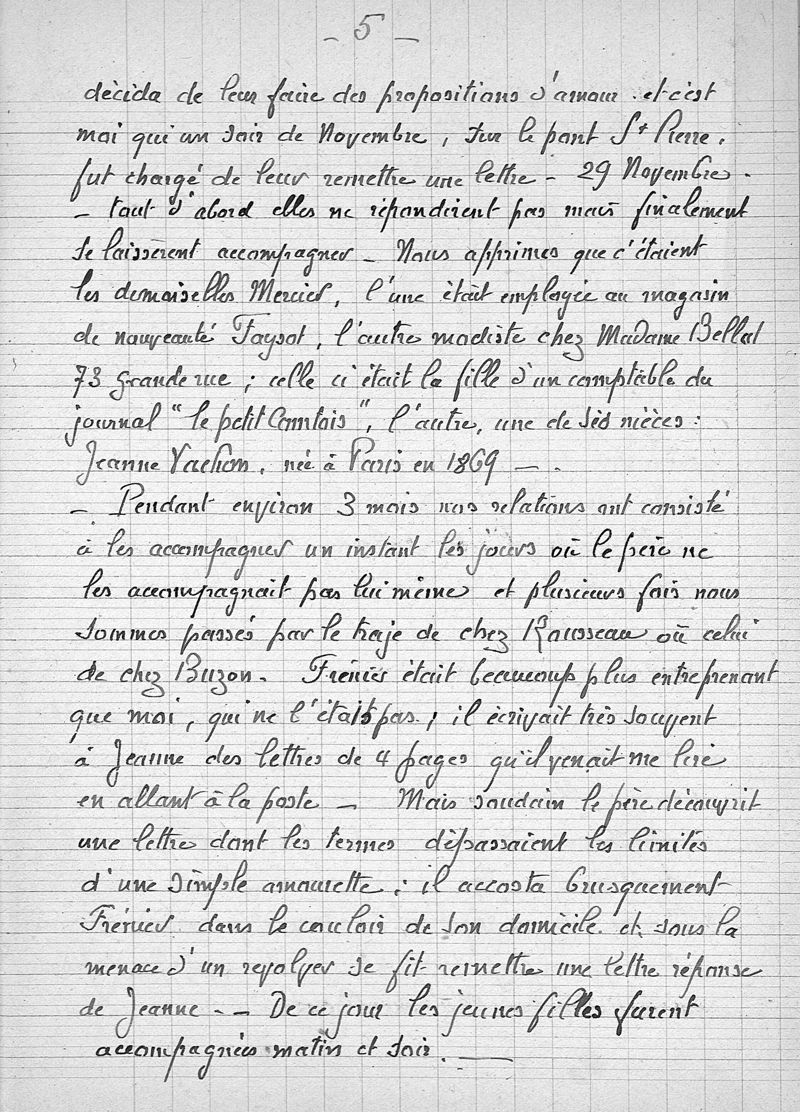 - 5 -
décida de leur faire des propositions d'amour. et c'est
moi qui un soir de Novembre, sur le pont St Pierre,
fut chargé de leur remettre une lettre - 29 Novembre -
- tout d'abord elles ne répondirent pas mais finalement
se laissèrent accompagner - Nous apprimes que c'étaient
les demoiselles Mercier, l'une était employée au magasin
de nouveauté Faysot, l'autre modiste chez Madame Bellat
73 grande rue ; celle ci était la fille d'un comptable du
journal "le petit Comtois", l'autre, une de ses nièces :
Jeanne Vachon, née à Paris en 1869 - .
- Pendant environ 3 mois nos relations ont consisté
à les accompagner un instant les jours où le père ne
les accompagnait pas lui même et plusieurs fois nous
sommes passés par le traje de chez Rousseau où celui
de chez Buzon. Frénier était beaucoup plus entreprenant
que moi, qui ne l'étais pas ; il écrivait très souvent
à Jeanne des lettres de 4 pages qu'il venait me lire
en allant à la poste - Mais soudain le père découvrit
une lettre dont les termes dépassaient les limites
d'une simple amourette ; il accosta brusquement
Frénier dans le couloir de son domicile et sous la
menace d'un revolver se fit remettre une lettre réponse
de Jeanne - - De ce jour les jeunes filles furent
accompagnées matin et soir. -